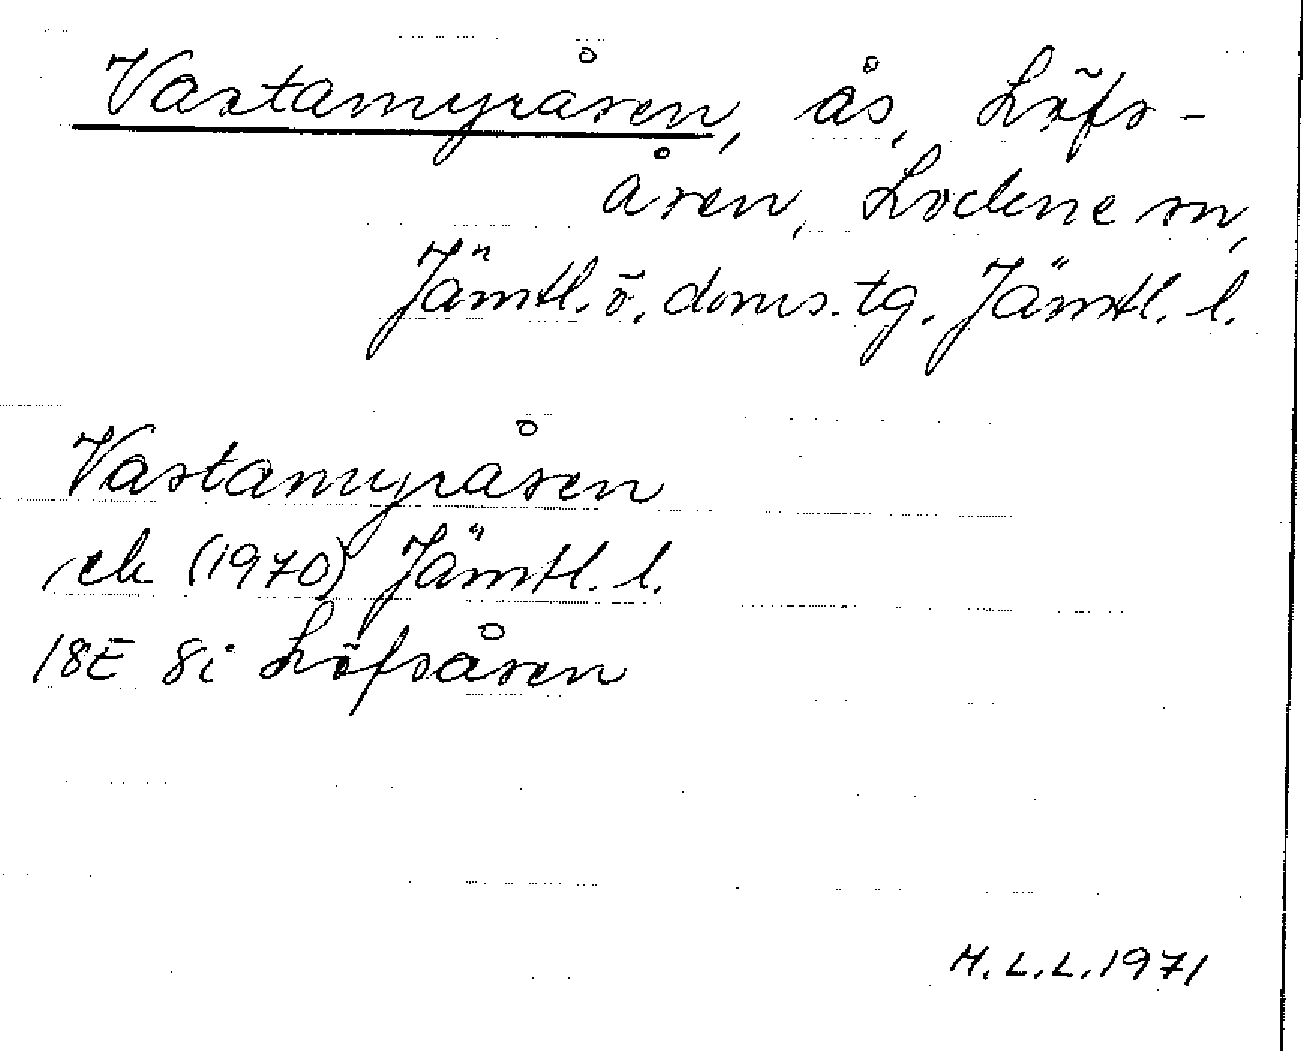 Vastamyråsen, ås, Löfs-
åsen, Lockne sn,
Jämtl. ö. doms. tg. Jämtl. l.
Vastamyråsen
ek (1970) Jämtl. l.
18E 8i Löfsåsen
H.L.L. 1971